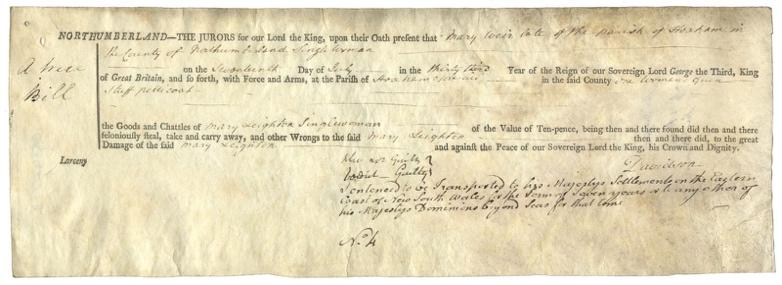 NORTHUMBERLAND—THE JURORS for our Lord the King, upon their Oath present that Mary Weir late of the parish of in
the County of Northumberland Singlewoman
on the Seventeenth Day of July in the thirty third Year of the Reign of our Sovereign Lord George the Third, King
of Great Britain, and so forth, with Force and Arms, at the Parish of aforesaid in the said County one womens
Stuff petticoat
A true
Bill
the Goods and Chattles of Mary Leighton Singlewoman of the Value of Ten-pence, being then and there found did then and there
feloniously steal, take and carry away, and other Wrongs to the said Mary Leighton then and there did, to the great
Damage of the said Mary Leighton and against the Peace of our Sovereign Lord the King, his Crown and Dignity.
Larceny
Plea not Guilty
Verdict Guilty
Davidson
Sentenced to be Transported to his Majestys Settlements on the Eastern
Coast of New South Wales for the Term of Seven years or any other of
his Majestys Dominions beyond Seas for that time
No. 4